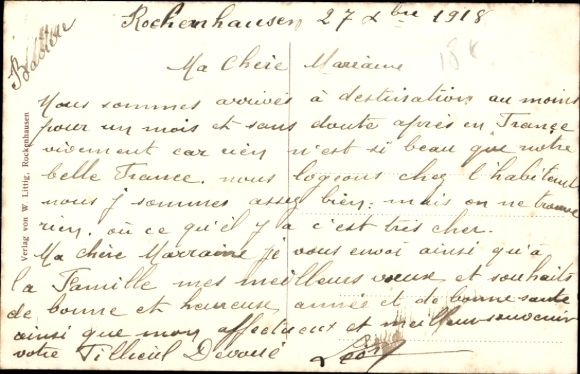 Rockenhausen 27 Xbre 1918
Bavière
Ma Chère Marraine
Nous sommes arrivés à destination au moins
pour un mois et sans doute après en France
vivement car rien n'est si beau que notre
belle France. nous logions chez l'habitant
nous y sommes assez bien; mais on ne trouve
rien, où ce qu'il y a c'est très cher.
Ma chère Marraine je vous envoi ainsi qu'à
la Famille mes meilleurs vœux et souhaits
de bonne et heureuse année et de bonne santé
ainsi que mon affectueux et meilleur souvenir
votre Filleul Dévoué
Léon
Verlag von W Littig, Rockenhausen